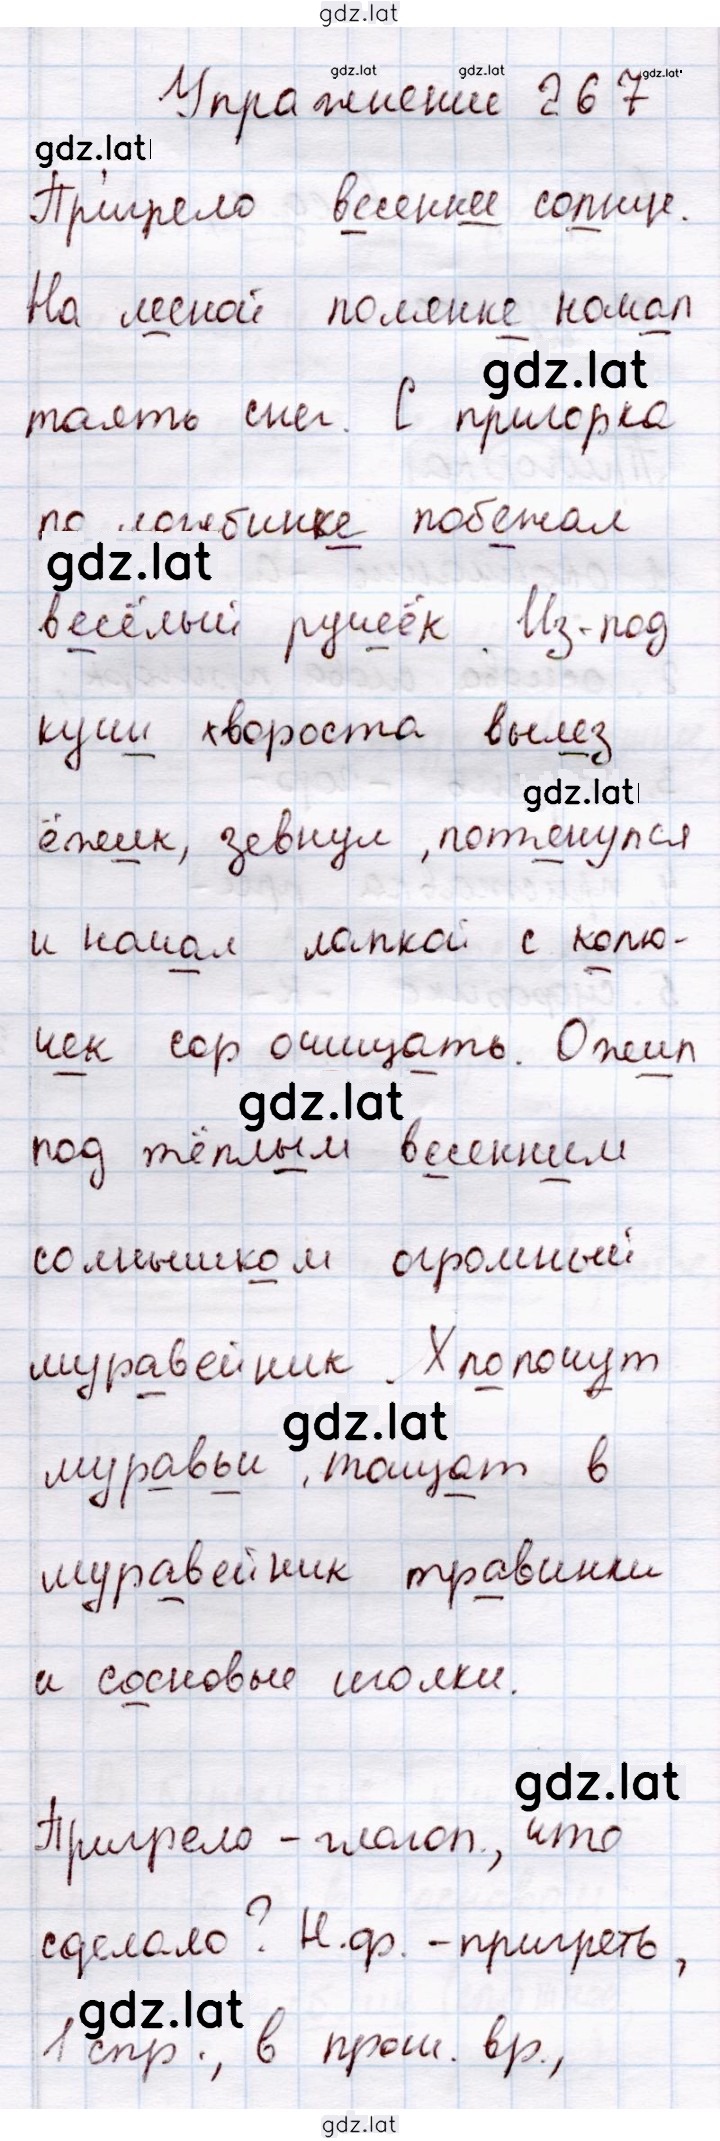 gdz.lat
Упражнение 267
gdz.lat gdz.lat gdz.lat
gdz.lat
Пригрело весеннее солнце.
На лесной полянке начал
gdz.lat
таять снег. С пригорка
по ложбинке побежал
gdz.lat
весёлый ручеёк. Из-под
кучи хвороста вылез
gdz.lat
ёжик, зевнул, потянулся
и начал лапкой с колю-
чек сор очищать. Ожил
gdz.lat
под тёплым весенним
солнышком огромный
муравейник. Хлопочут
gdz.lat
муравьи, тащат в
муравейник травинки
и сосновые иголки.
gdz.lat
Пригрело - глагол., что
сделало? Н.ф. - пригреть,
gdz.lat
1 спр., в прош. вр.,
gdz.lat